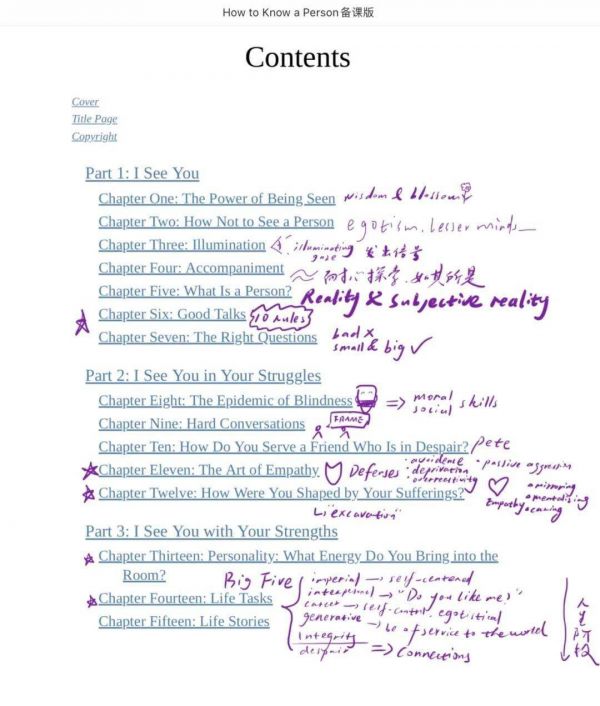 How to Know a Person备课版
Contents
Cover
Title Page
Copyright
Part 1: I See You
Chapter One: The Power of Being Seen wisdom & blossom
Chapter Two: How Not to See a Person egotism. lesser minds
Chapter Three: Illumination illuminating gaze 发出信号
Chapter Four: Accompaniment 耐心探索,如其所是
Chapter Five: What Is a Person? Reality & subjective reality
Chapter Six: Good Talks 10 rules
Chapter Seven: The Right Questions bad x
small & big ✓
Part 2: I See You in Your Struggles
Chapter Eight: The Epidemic of Blindness => moral
social skills
Chapter Nine: Hard Conversations FRAME
Chapter Ten: How Do You Serve a Friend Who Is in Despair? Pete
Chapter Eleven: The Art of Empathy Defenses: · avoidance
· deprivation
· overreactivity
· passive aggression
Chapter Twelve: How Were You Shaped by Your Sufferings?
Empathy
mirroring
mentalizing
caring
"excavation"
Part 3: I See You with Your Strengths
Chapter Thirteen: Personality: What Energy Do You Bring into the
Room? Big Five
Chapter Fourteen: Life Tasks
Chapter Fifteen: Life Stories
imperial → self-centered
interpersonal → "Do you like me?"
career → self-control. egotistical
generative → be of service to the world
Integrity
despair => Connections
人生阶段